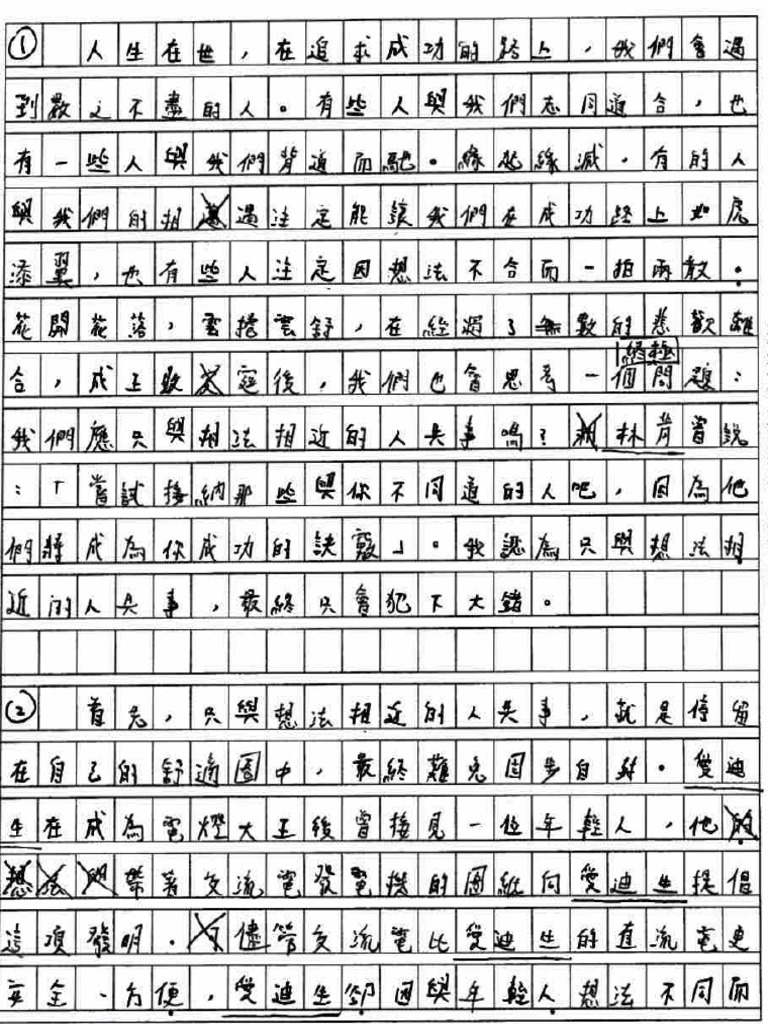 ① 人生在世，在追求成功的路上，我們會遇
到數之不盡的人。有些人與我們志同道合，也
有一些人與我們背道而馳。緣起緣滅，有的人
與我們的相遇注定能讓我們在成功路上如虎
添翼，也有些人注定因想法不合而一拍兩散。
花開花落，雲捲雲舒，在經過了無數的悲歡離
合，成王敗寇後，我們也會思考一個終極問題：
我們應只與想法相近的人共事嗎？林肯曾說
：「嘗試接納那些與你不同道的人吧，因為他
們將成為你成功的訣竅」。我認為只與想法相
近的人共事，最終只會犯下大錯。
② 首先，只與想法相近的人共事，就是停留
在自己的舒適圈中，最終難免固步自封。愛迪
生在成為電燈大王後曾接見一位年輕人，他
帶著交流電發電機的圖紙向愛迪生提倡
這項發明。儘管交流電比愛迪生的直流電更
安全、方便，愛迪生卻因與年輕人想法不同而